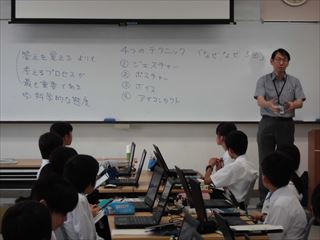 答えを覚える よりも
考えるプロセスが
最も重要である
⇨ 科学的な態度
4つのテクニック 「なぜなぜ5回」
① ジェスチャー
② ポスチャー
③ ボイス
④ アイコンタクト